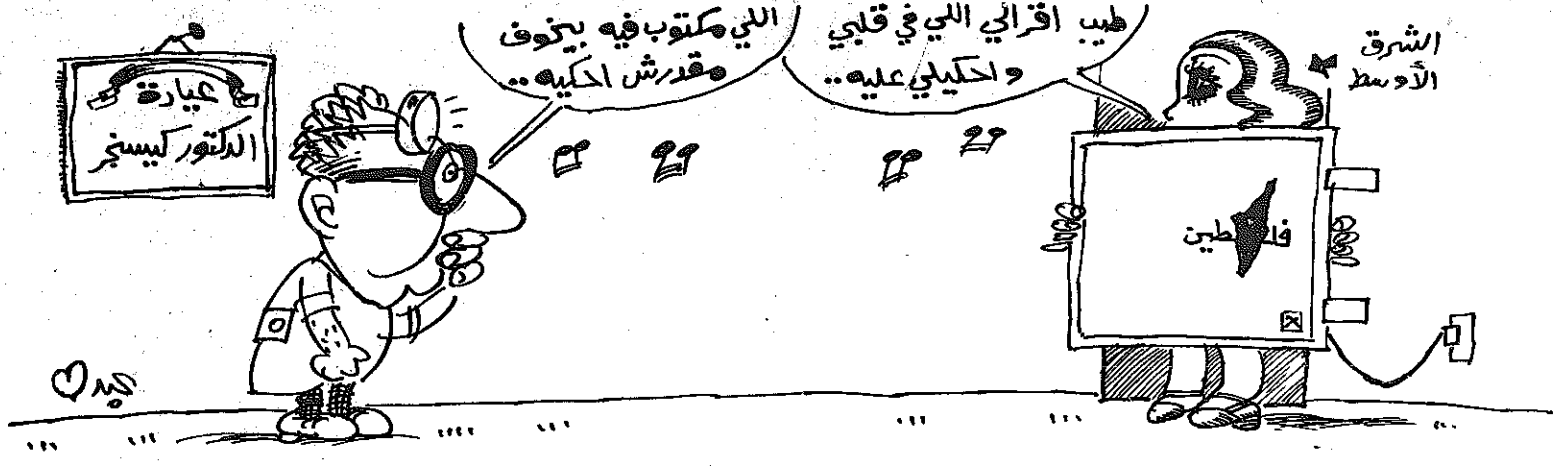 الشرق
الأوسط
طيب اقرالي اللي في قلبي
واحكيلي عليه..
اللي مكتوب فيه بيخوف
مقدرش احكيه..
عيادة
الدكتور كيسنجر
فلسطين